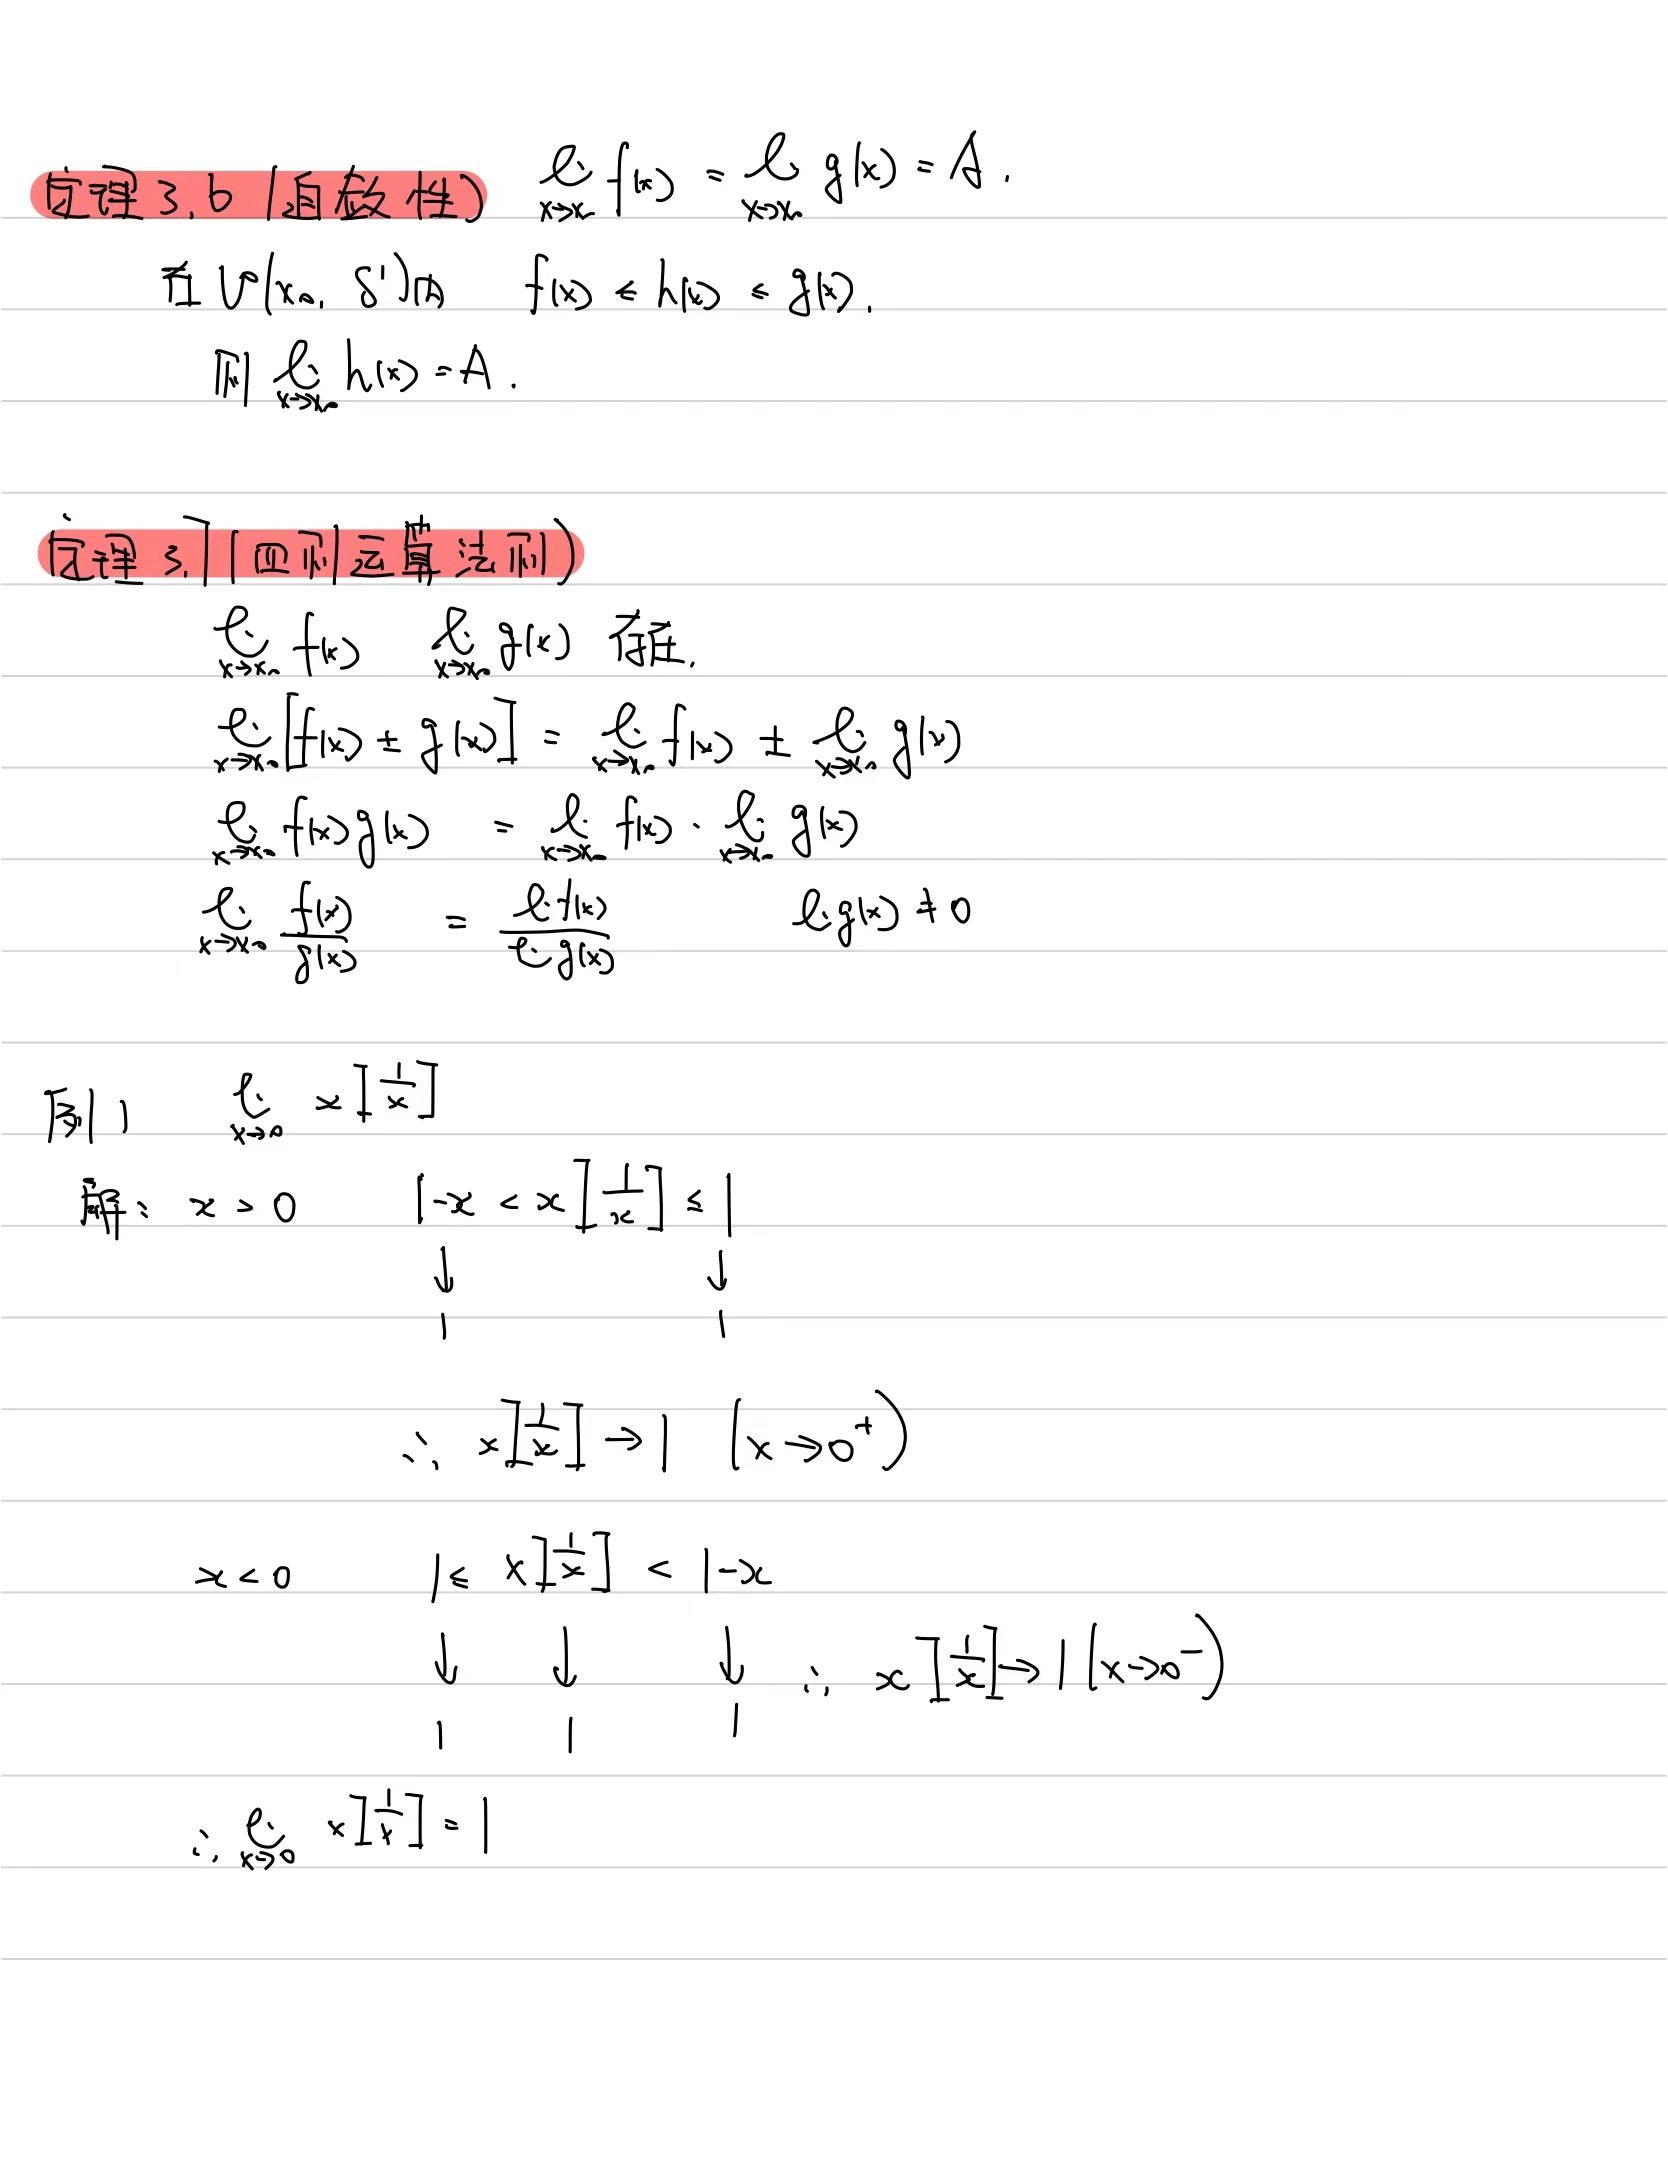 定理3.6(迫敛性) lim x→x₀ f(x) = lim x→x₀ g(x) = A.
在 U°(x₀, δ')内 f(x) ≤ h(x) ≤ g(x).
则 lim x→x₀ h(x) = A.
定理3.7(四则运算法则)
lim x→x₀ f(x) lim x→x₀ g(x) 存在.
lim x→x₀ [f(x) ± g(x)] = lim x→x₀ f(x) ± lim x→x₀ g(x)
lim x→x₀ f(x)g(x) = lim x→x₀ f(x) · lim x→x₀ g(x)
lim x→x₀ f(x)/g(x) = lim f(x)/lim g(x) lim g(x) ≠ 0
例1 lim x→0 x[1/x]
解: x > 0 1-x < x[1/x] ≤ 1
↓ ↓
1 1
∴ x[1/x] → 1 (x→0⁺)
x < 0 1 ≤ x[1/x] < 1-x
↓ ↓ ↓ ∴ x[1/x] → 1 (x→0⁻)
1 1 1
∴ lim x→0 x[1/x] = 1